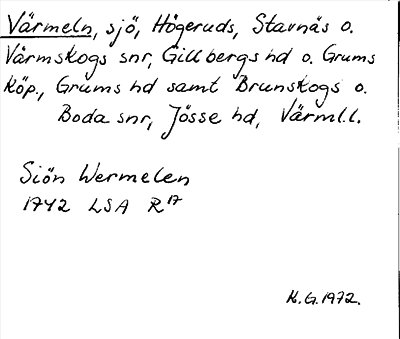 Värmeln, sjö, Högeruds, Stavnäs o.
Värmskogs snr, Gillbergs hd o. Grums
köp., Grums hd samt Brunskogs o.
Boda snr, Jösse hd, Värml.l.
Siön Wermelen
1742 LSA R17
K.G.1972.